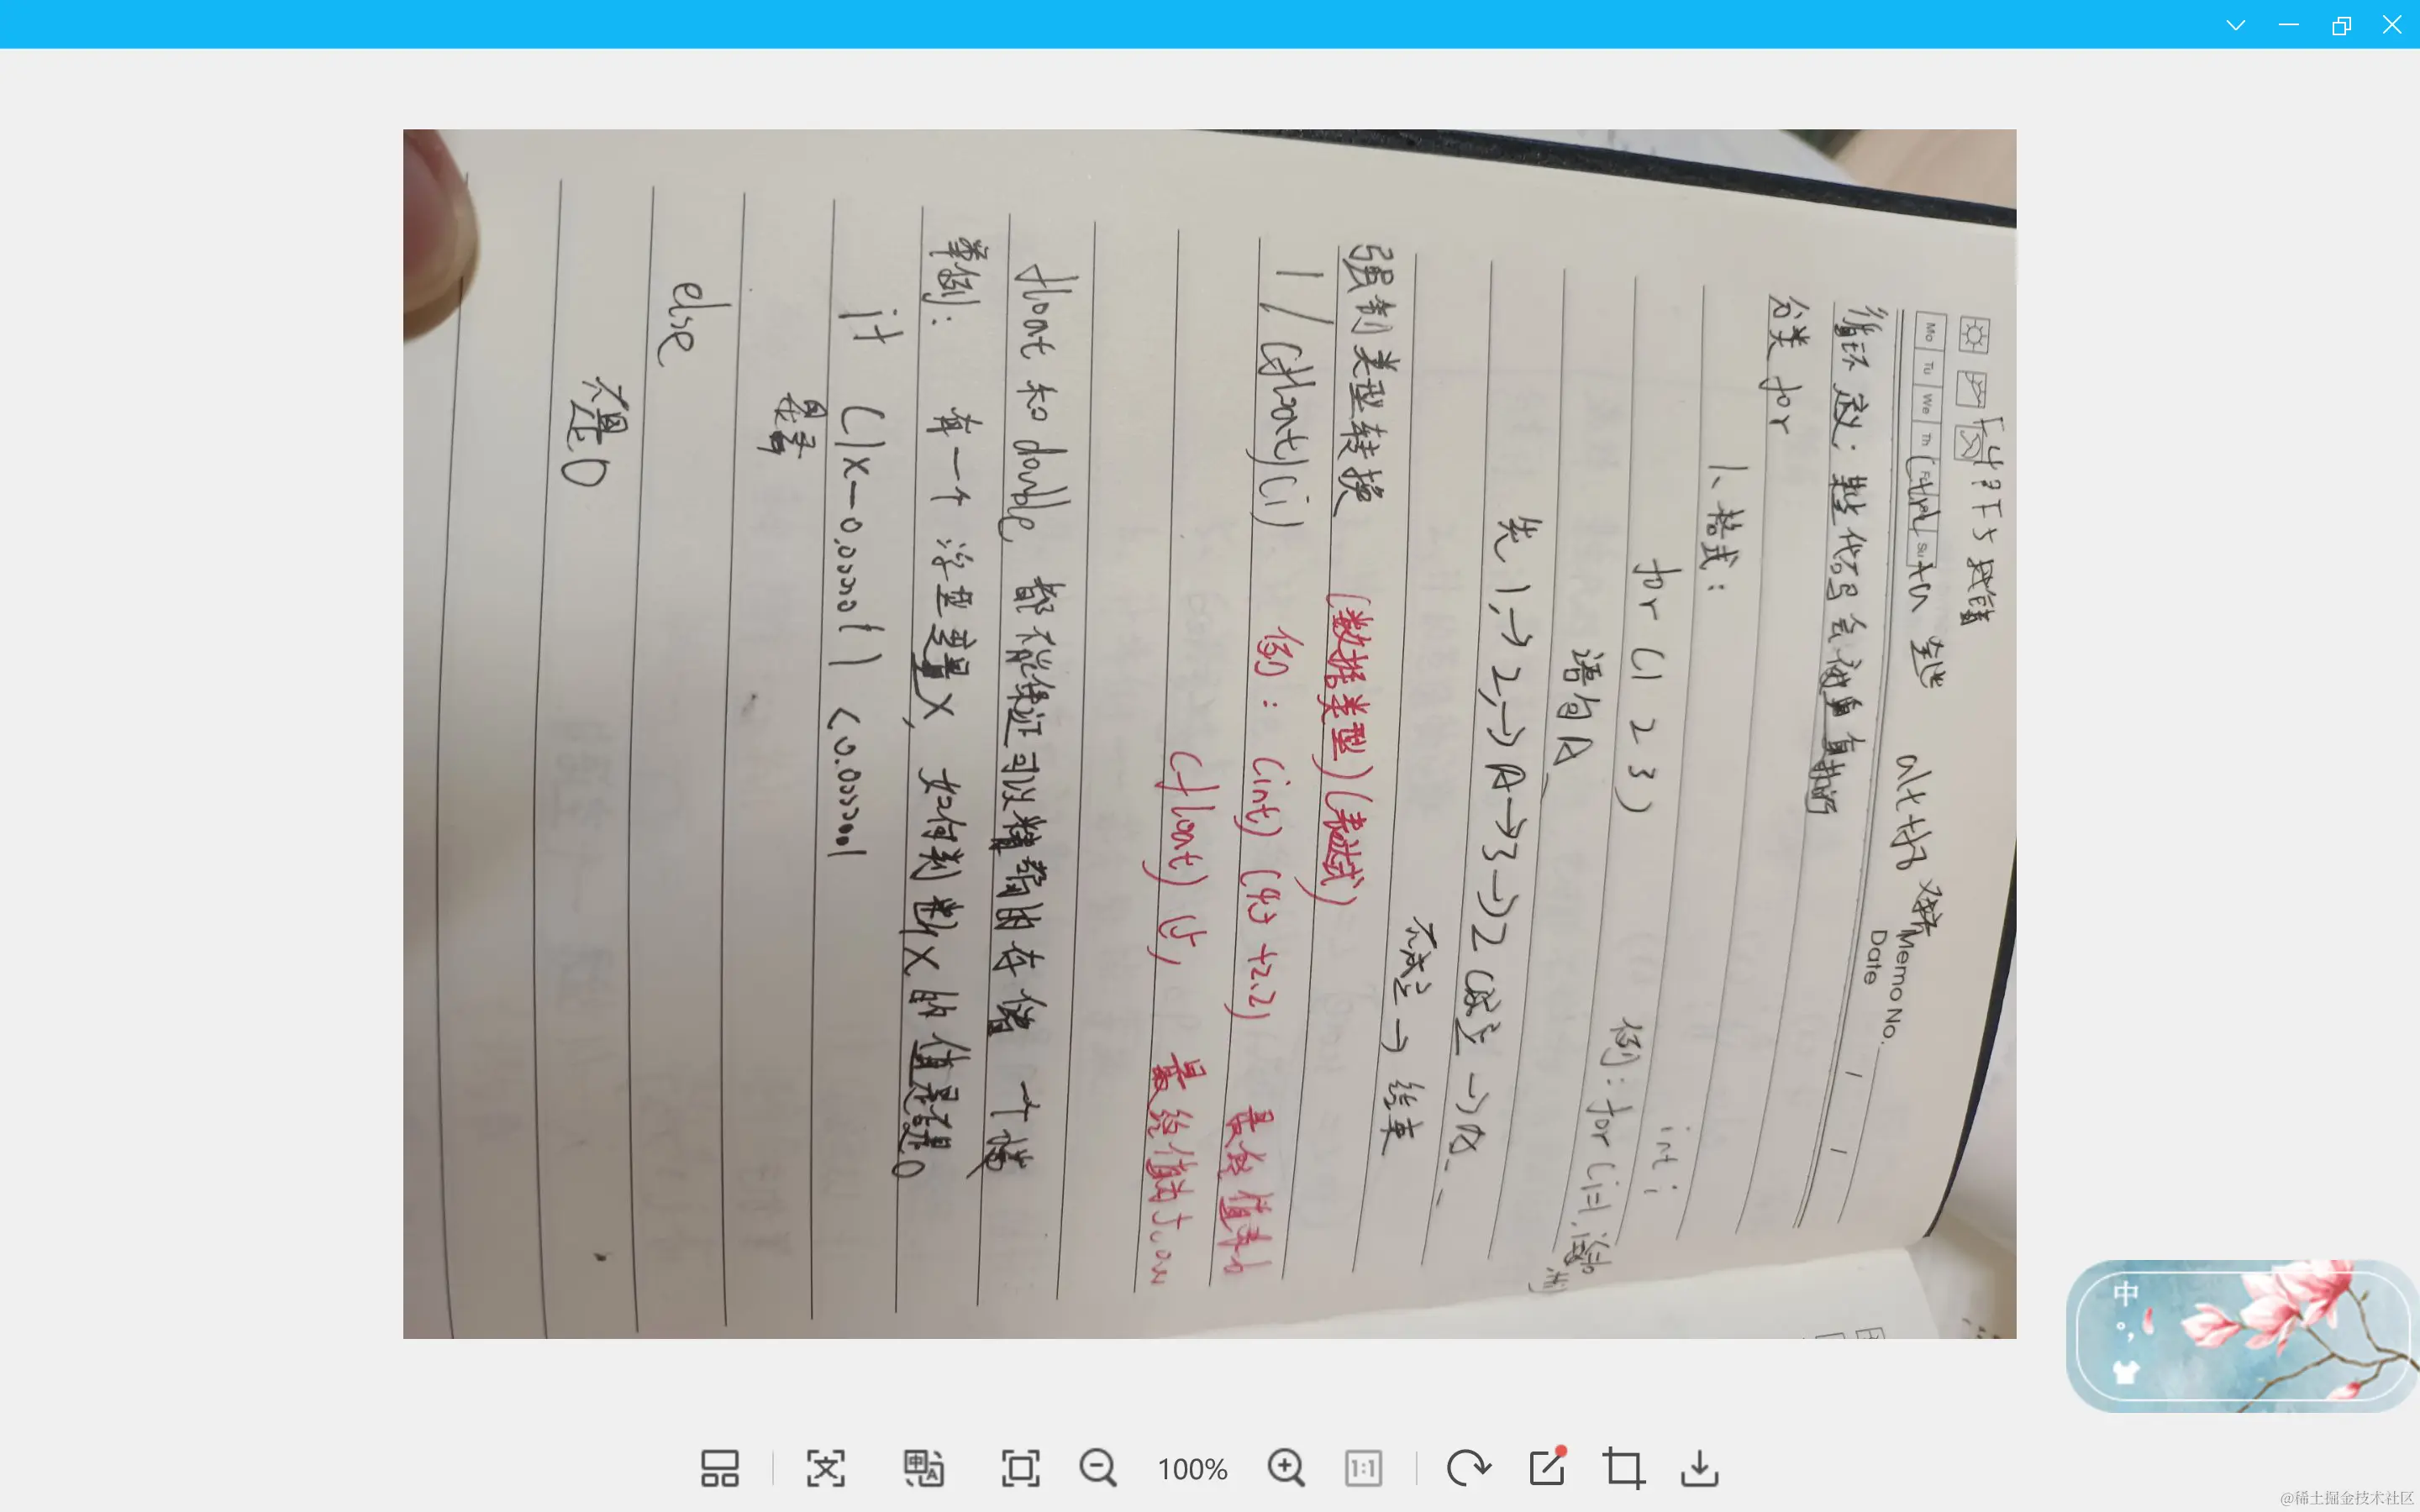 Ctrl+a 全选 alt+f8
Memo No.
Mo Tu We Th Su
Date / /
循环 定义:某些代码会被重复执行
分类 for
1、格式:
for (1 2 3) int i
语句A 例:for (i=1,
先1,→2,→A→3→2 成立→A
不成立→结束
强制类型转换 (数据类型)(表达式)
1/(float)(i) 例:(int)(4.5+2.2) 最终值为6
(float)(5) 最终值为5.0
float 和 double 都不能保证可以精确的存储一个
举例: 有一个浮点变量X, 如何判断X的值是否是0
if (|x-0.000001|<0.000001
是零
else
不是0
100%
1:1
中
@稀土掘金技术社区